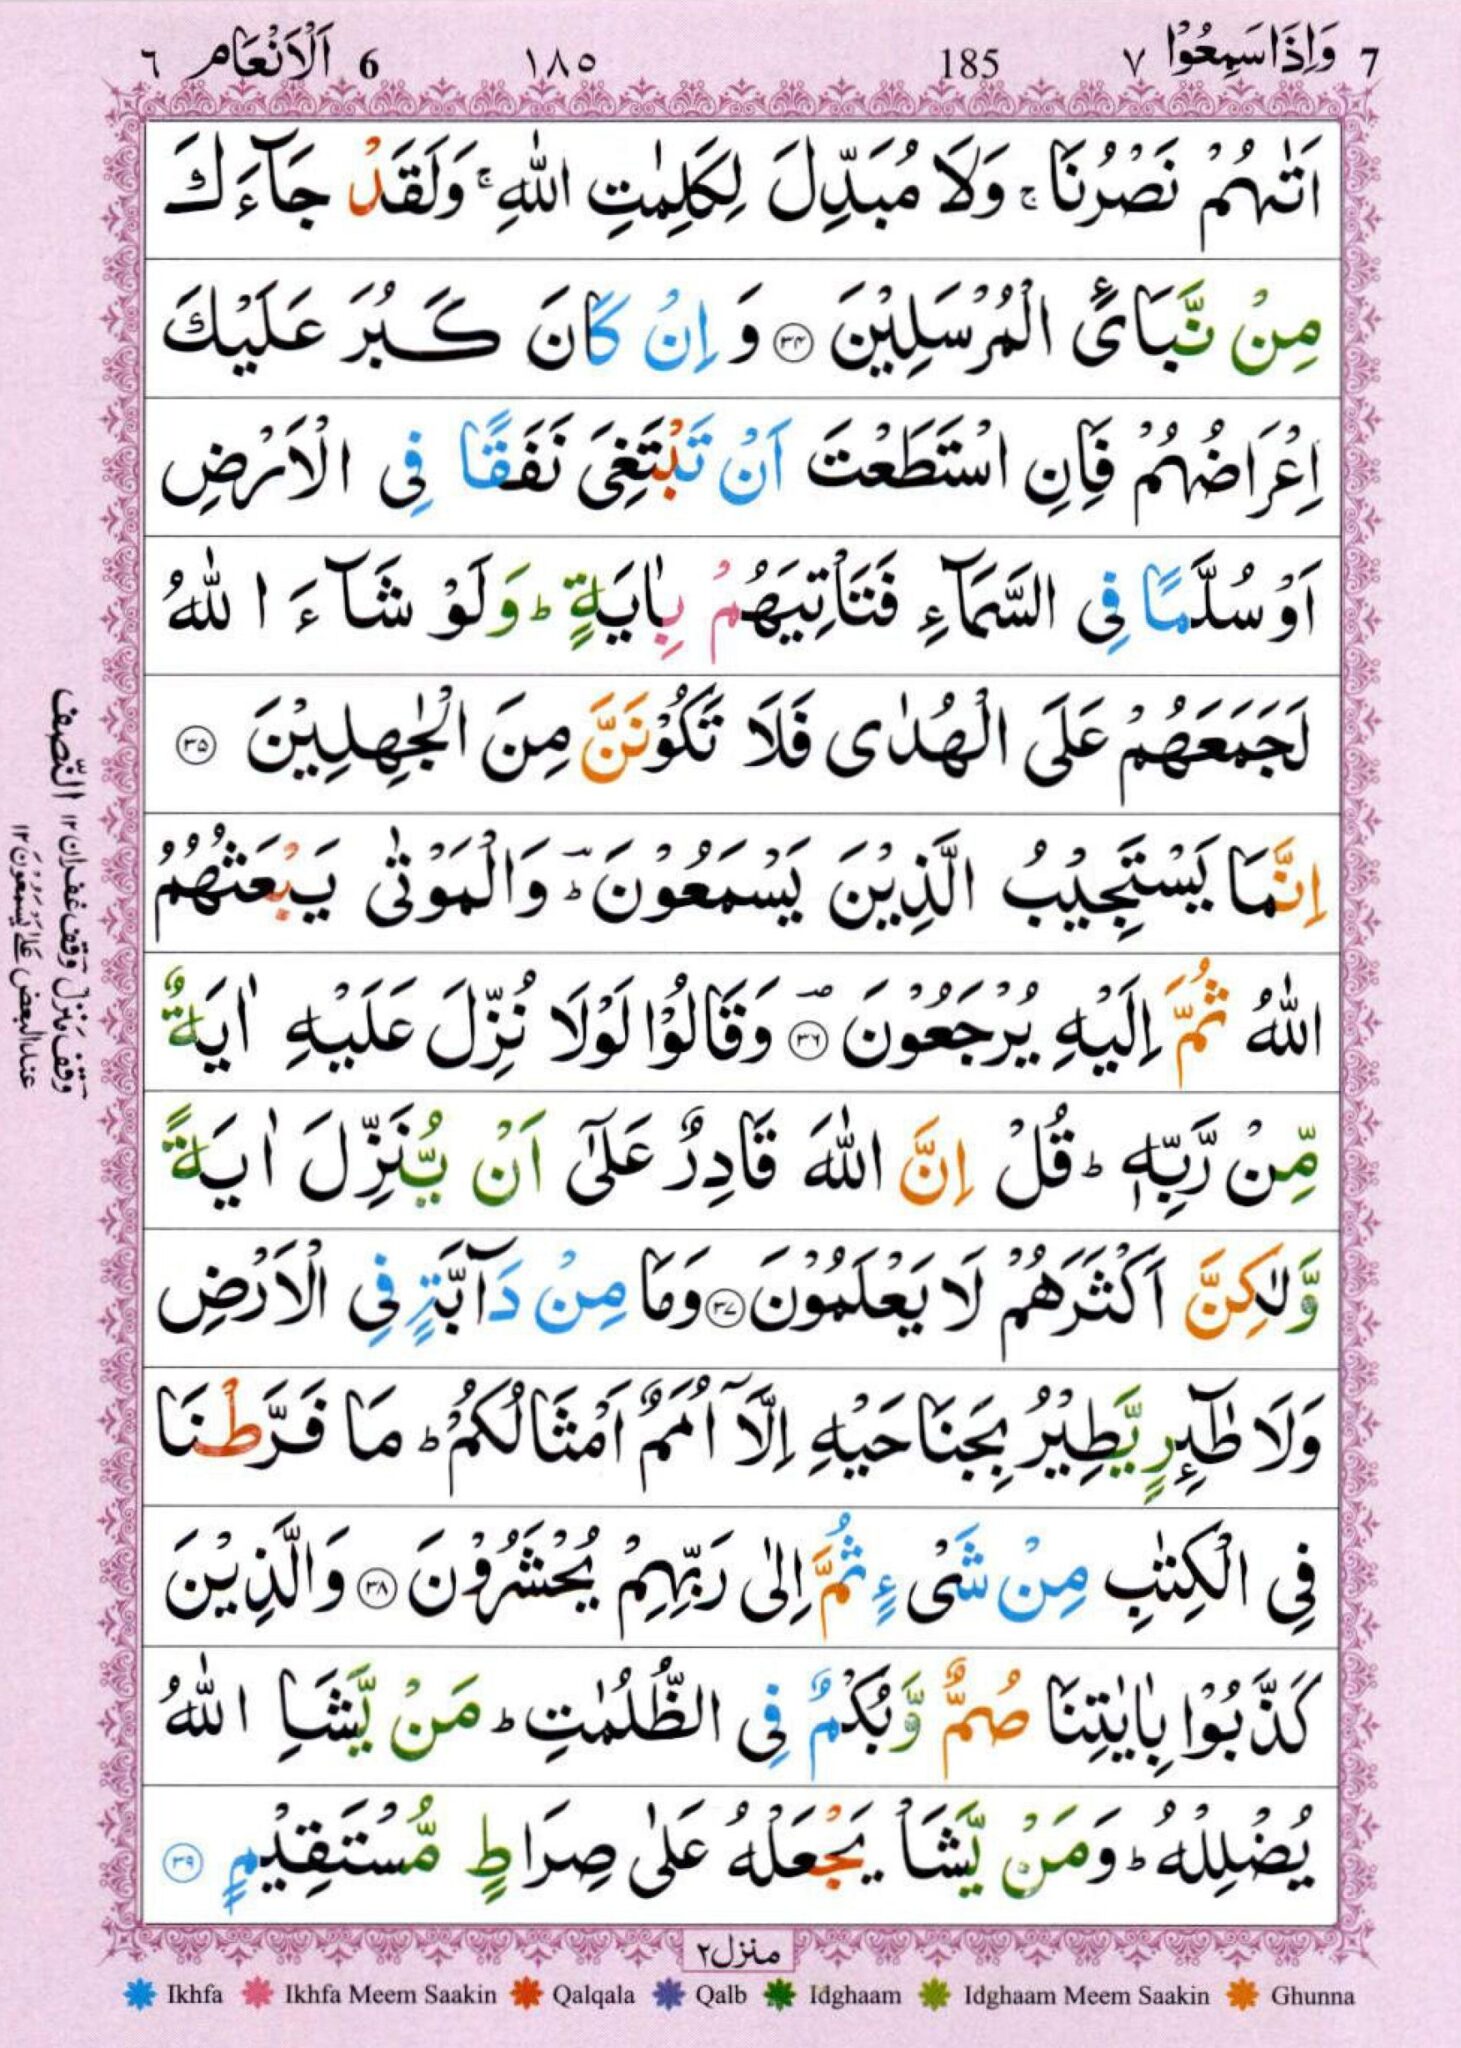 7 وَاِذَا سَمِعُوْا ٧ 185 ١٨٥ 6 اَلْاَنْعَام ٦
اَتٰىهُمْ نَصْرُنَا ۚ وَلَا مُبَدِّلَ لِكَلِمٰتِ اللّٰهِ ۚ وَلَقَدْ جَآءَكَ
مِنْ نَّبَاِئ الْمُرْسَلِيْنَ ۳۴ وَ اِنْ كَانَ كَبُرَ عَلَيْكَ
اِعْرَاضُهُمْ فَاِنِ اسْتَطَعْتَ اَنْ تَبْتَغِىَ نَفَقًا فِى الْاَرْضِ
اَوْ سُلَّمًا فِى السَّمَآءِ فَتَاْتِيَهُمْ بِاٰيَةٍ ؕ وَلَوْ شَآءَ اللّٰهُ
لَجَمَعَهُمْ عَلَى الْهُدٰى فَلَا تَكُوْنَنَّ مِنَ الْجٰهِلِيْنَ ۳۵
اِنَّمَا يَسْتَجِيْبُ الَّذِيْنَ يَسْمَعُوْنَ ؕ وَالْمَوْتٰى يَبْعَثُهُمُ
اللّٰهُ ثُمَّ اِلَيْهِ يُرْجَعُوْنَ ۳۶ وَقَالُوْا لَوْلَا نُزِّلَ عَلَيْهِ اٰيَةٌ
مِّنْ رَّبِّهٖ ؕ قُلْ اِنَّ اللّٰهَ قَادِرٌ عَلٰٓى اَنْ يُّنَزِّلَ اٰيَةً
وَّلٰكِنَّ اَكْثَرَهُمْ لَا يَعْلَمُوْنَ ۳۷ وَمَا مِنْ دَآبَّةٍ فِى الْاَرْضِ
وَلَا طٰٓئِرٍ يَّطِيْرُ بِجَنَاحَيْهِ اِلَّاۤ اُمَمٌ اَمْثَالُكُمْ ؕ مَا فَرَّطْنَا
فِى الْكِتٰبِ مِنْ شَىْءٍ ثُمَّ اِلٰى رَبِّهِمْ يُحْشَرُوْنَ ۳۸ وَالَّذِيْنَ
كَذَّبُوْا بِاٰيٰتِنَا صُمٌّ وَّبُكْمٌ فِى الظُّلُمٰتِ ؕ مَنْ يَّشَاِ اللّٰهُ
يُضْلِلْهُ ؕ وَمَنْ يَّشَاْ يَجْعَلْهُ عَلٰى صِرَاطٍ مُّسْتَقِيْمٍ ۳۹
النّصف وقف غفران ۱۲
وقف منزل
عند البعض علٰى يَسْمَعُوْنَ ۱۲
منزل۲
Ikhfa Ikhfa Meem Saakin Qalqala Qalb Idghaam Idghaam Meem Saakin Ghunna